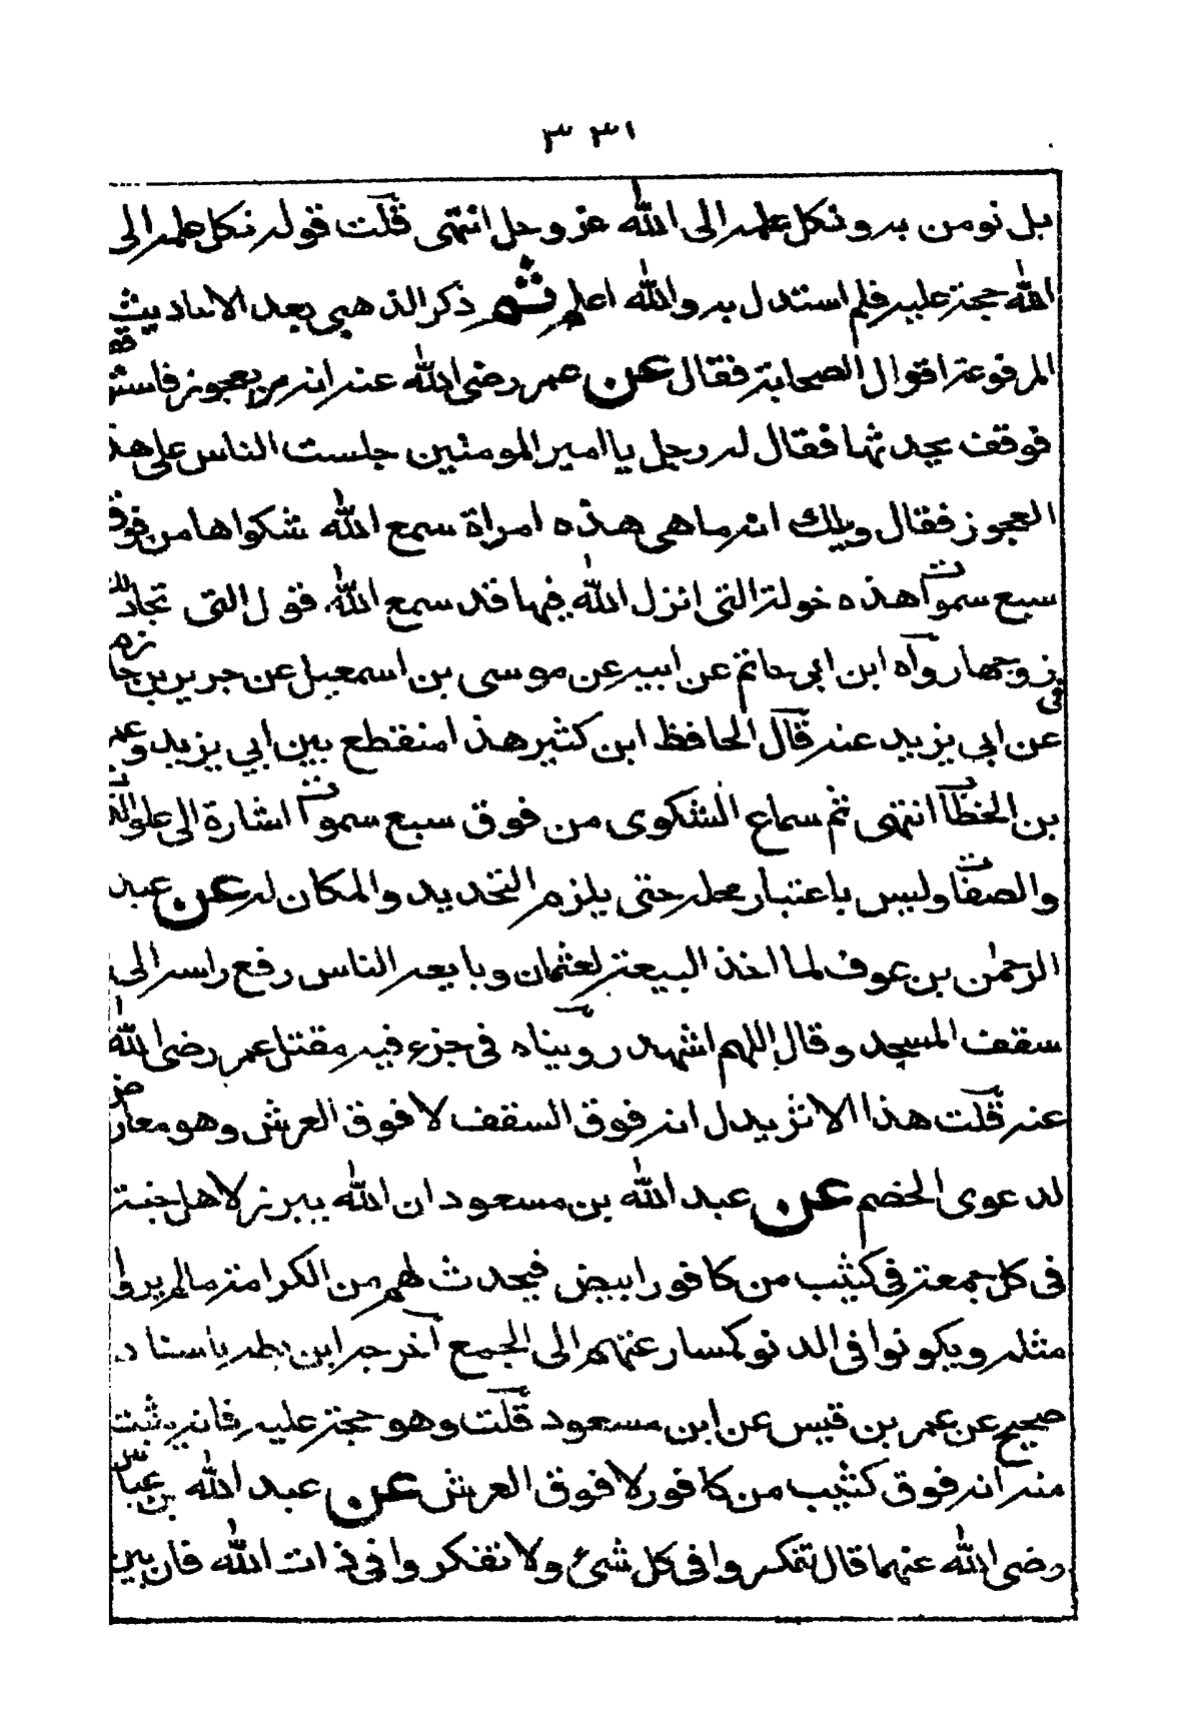 ٣٣١
بل نومن به ونكل علمه الى الله عز وجل انتهى قلت قوله نكل علمه الى
الله حجة عليه فلم استدل به والله اعلم ثم ذكر الذهبي بعد الاحاديث
المرفوعة اقوال الصحابة فقال عن عمر رضى الله عنه انه مر بعجوز فاستوقفته
فوقف يحدثها فقال له رجل يا امير المومنين جلست الناس على هذ
العجوز فقال ويلك اتدر ماهى هذه امراة سمع الله شكواها من فوق
سبع سموات هذه خولة التى انزل الله فيها قد سمع الله قول التى تجادلك
فى زوجها رواه ابن ابى حاتم عن ابيه عن موسى بن اسمعيل عن جرير بن حازم
عن ابى يزيد عنه قال الحافظ ابن كثير هذا منقطع بين ابي يزيد وعمر
بن الخطاب انتهى ثم سماع الشكوى من فوق سبع سموات اشارة الى علو
والصفات وليس باعتبار محله حتى يلزم التحديد والمكان له عن عبد
الرحمن بن عوف لما اخذ البيعة لعثمان وبايعه الناس رفع راسه الى
سقف المسجد وقال اللهم اشهد رويناه فى جزء فيه مقتل عمر رضى الله
عنه قلت هذا الاثر يدل انه فوق السقف لا فوق العرش وهو معارض
لدعوى الخصم عن عبد الله بن مسعود ان الله يبرز لاهل جنة
فى كل جمعة فى كثيب من كافور ابيض فيحدث لهم من الكرامة مالم يروا
مثله ويكونوا فى الدنو كمسارعتهم الى الجمع آخرجه ابن بطه باسناد
صحيح عن عمر بن قيس عن ابن مسعود قلت وهو حجة عليه فانه يثبت
منه انه فوق كثيب من كافور لا فوق العرش عن عبد الله بن عباس
رضى الله عنهما قال تفكروا فى كل شئ ولا تفكروا فى ذات الله فان بين